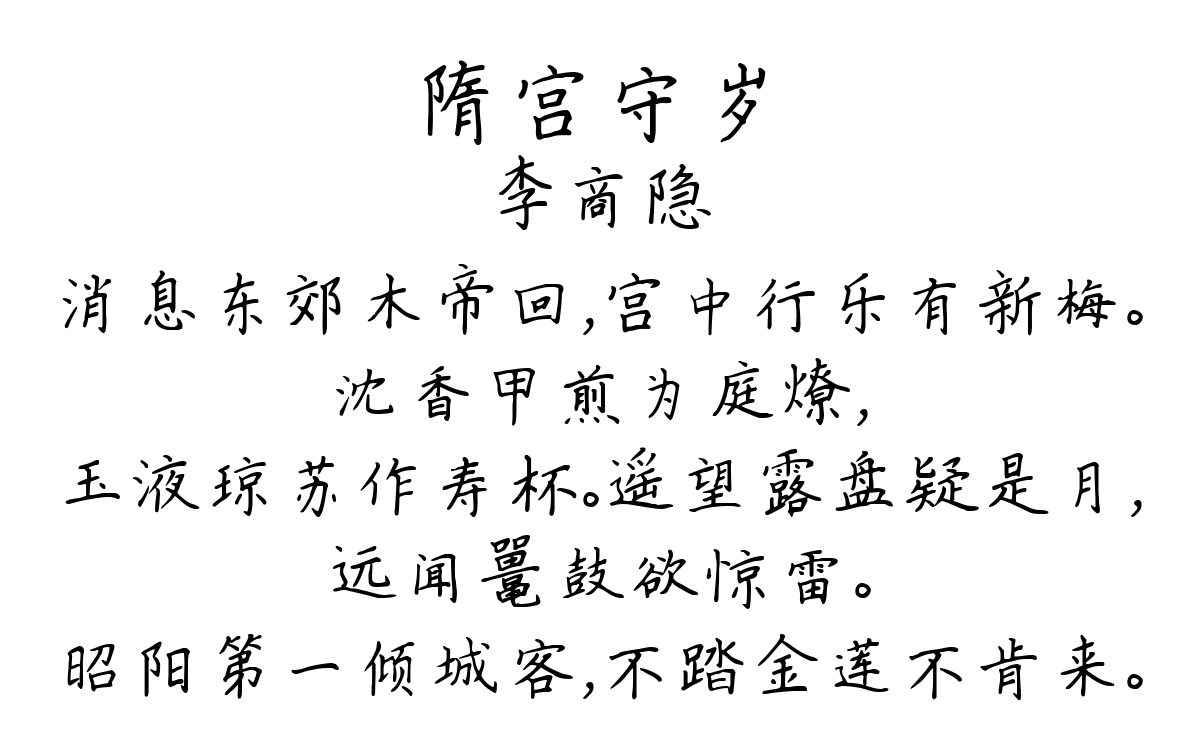 隋宫守岁
李商隐
消息东郊木帝回,宫中行乐有新梅。
沈香甲煎为庭燎,
玉液琼苏作寿杯。遥望露盘疑是月,
远闻鼍鼓欲惊雷。
昭阳第一倾城客,不踏金莲不肯来。